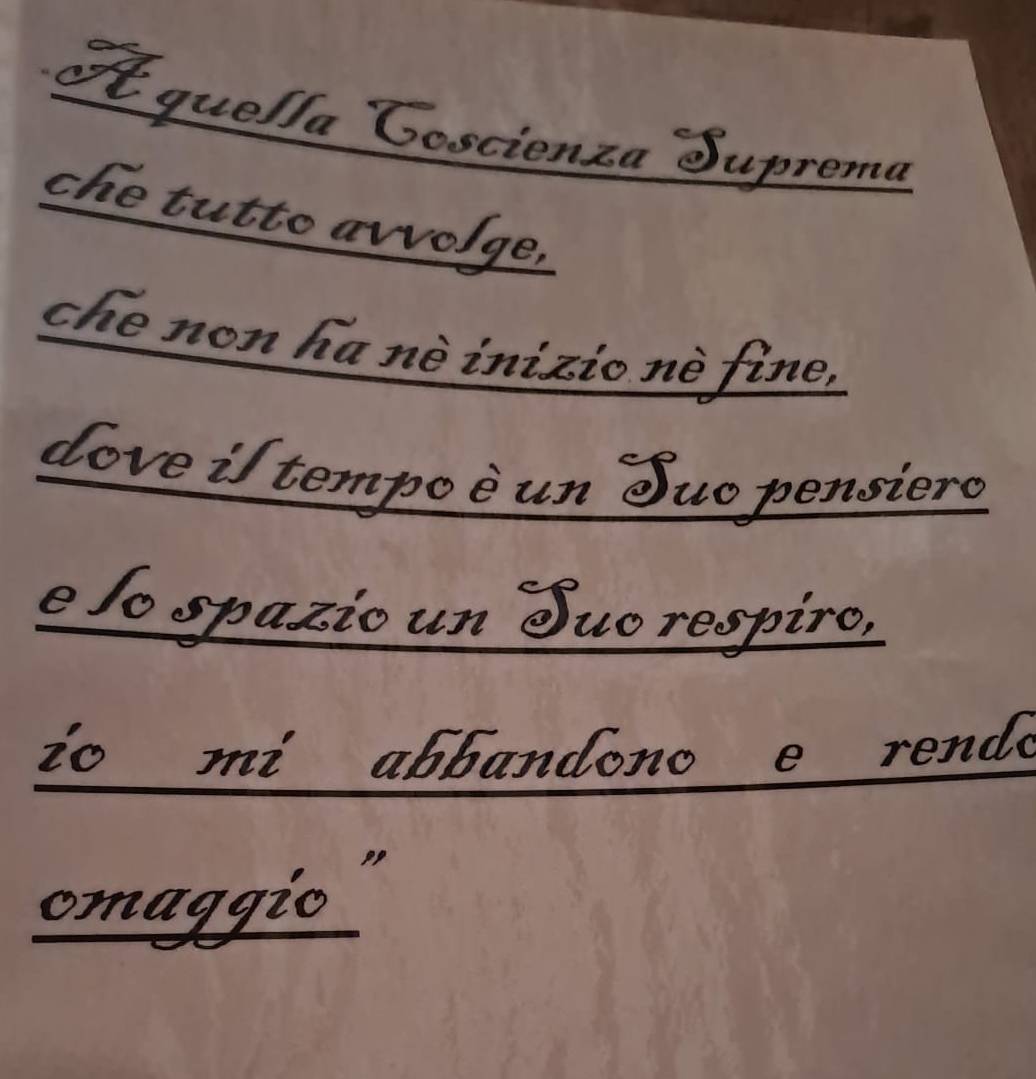 A quella Coscienza Suprema
che tutto avvolge,
che non ha nè inizio nè fine,
dove il tempo è un Suo pensiero
e lo spazio un Suo respiro,
io mi abbandono e rendo
omaggio”